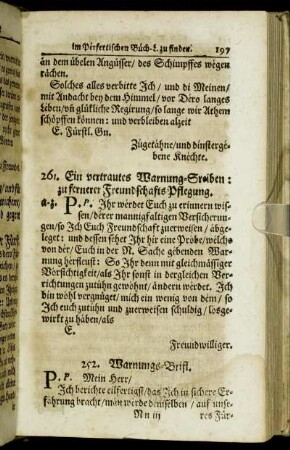 im Perfertischen Büch-l. zu finden. 197
an dem übelen Angüsser/ des Schimpffes wegen
rächen.
Solches alles verbitte Jch/ und di Meinen/
mit Andacht bey dem Himmel/ vor Dero langes
Leben/ uñ glükliche Regirung/ so lange wir Athem
schöpffen können: und verbleiben alzeit
E. Fürstl. Gn.
Zügetähne/ und dinsterge-
bene Knechte.
261. Ein vertrautes Warnung-Sreiben:
zu fernerer Freundschafts-Pflegung.
a-z. P. P. Jhr werdet Euch zu erinnern wis-
sen/ derer mannigfaltigen Versicherun-
gen/ so Jch Euch Freundschaft zuerweisen/ abge-
leget: und dessen sihet Jhr hir eine Probe/ welche
von der/ Euch in der N. Sache gebenden War-
nung herfleust: So Jhr denn mit gleichmässiger
Vorsichtigkeit/ als Jhr sonst in dergleichen Ver-
richtungen zutuhn gewohnt/ ändern werdet. Jch
bin wohl vergnüget/ mich ein wenig von dem/ so
Jch euch zutuhn und zuerweisen schuldig/ losge-
wirkt zu haben/ als
E.
Freundwilliger.
252. Warnungs-Brifl.
P. P. Mein Herr/
Jch berichte eilfertigst/ das Jch in sichere Er-
fahrung bracht/ man werde demselben/ auf unse-
Nn iii res Für-